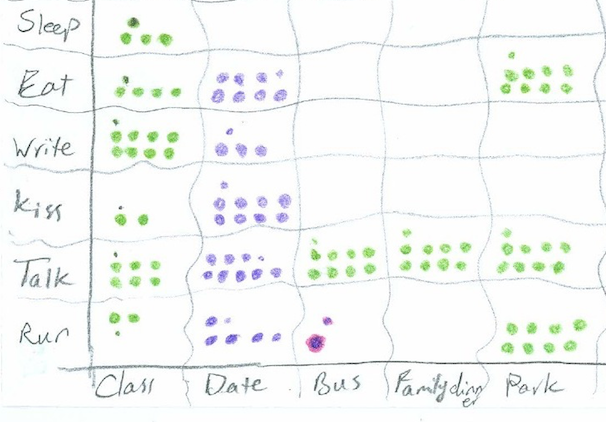 Sleep
Eat
Write
Kiss
Talk
Run
Class Date Bus Family dinn
er Park